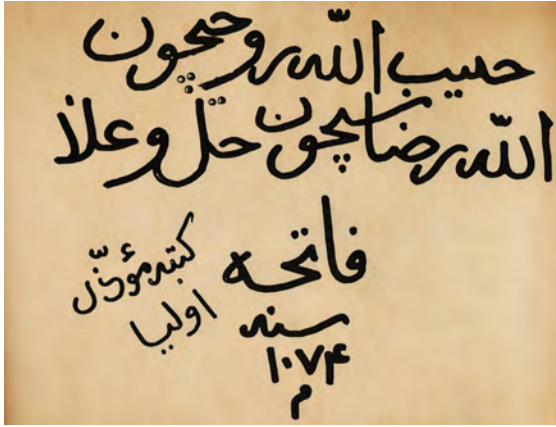 حبيب الله روحيچون
الله رضاسيچون جلّ وعلا
فاتحه
كتبه مؤذّن
اوليا
سنه
۱۰۷۴
م